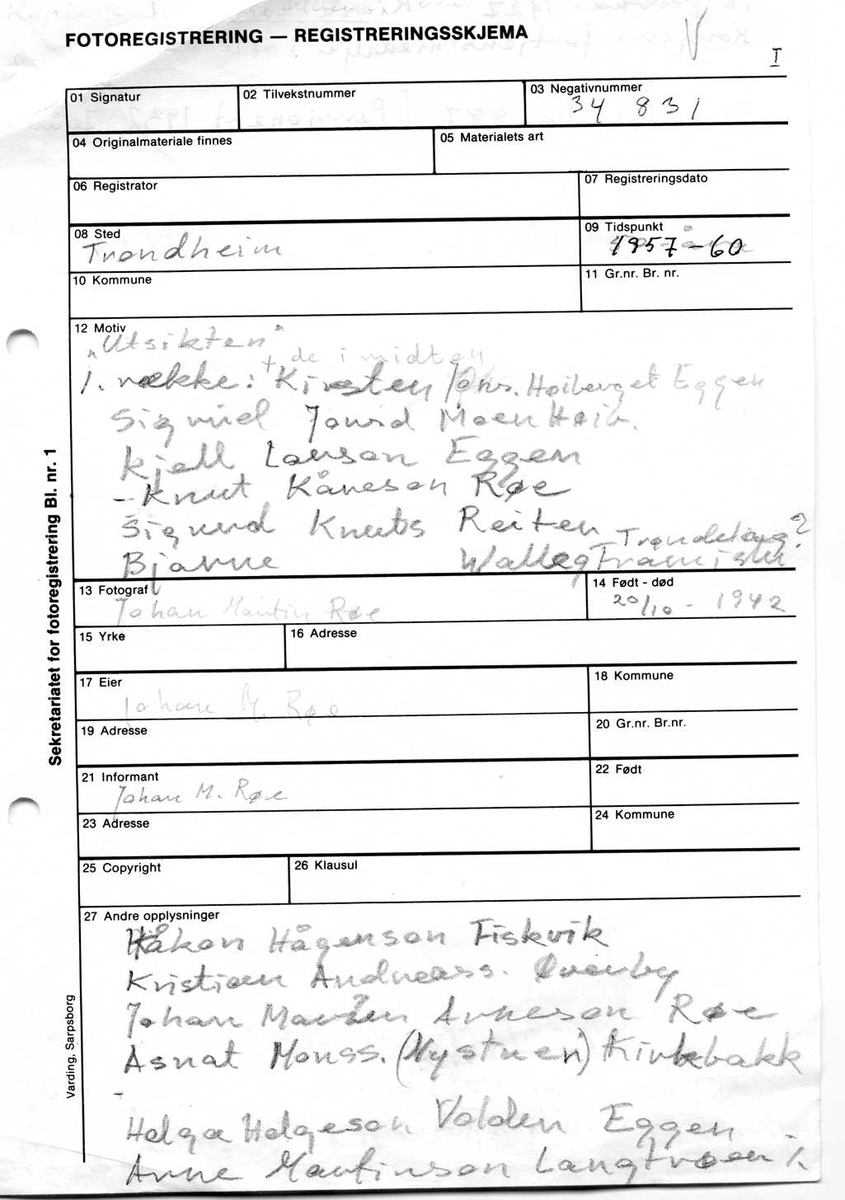 FOTOREGISTRERING — REGISTRERINGSSKJEMA
I
01 Signatur
02 Tilvekstnummer
03 Negativnummer
34 831
04 Originalmateriale finnes
05 Materialets art
06 Registrator
07 Registreringsdato
08 Sted
Trondheim
09 Tidspunkt
1957-60
10 Kommune
11 Gr.nr. Br. nr.
12 Motiv
"Utsikten"
+ de i midten
1. række: Kirsten Johs. Hoiberget Eggen
Sigrud Jonrd Moen Hoib.
Kjell Larson Eggen
- Knut Kåneson Røe
Sigurd Knuts Reiten
Trøndelag?
Bjarne Walleg
13 Fotograf
Johan Martin Røe
14 Født - død
20/10 - 1942
15 Yrke
16 Adresse
17 Eier
Johan M. Røe
18 Kommune
19 Adresse
20 Gr.nr. Br.nr.
21 Informant
Johan M. Røe
22 Født
23 Adresse
24 Kommune
25 Copyright
26 Klausul
27 Andre opplysninger
Håkon Hågenson Fiskvik
Kristian Andreass. Øverby
Johan Arneson Røe
Asnat Monss. (Nystuen) Kirkbakk
Helge Helgeson Volden Eggen
Arne Martinson Langtrøen
Sekretariatet for fotoregistrering Bl. nr. 1
Varding, Sarpsborg